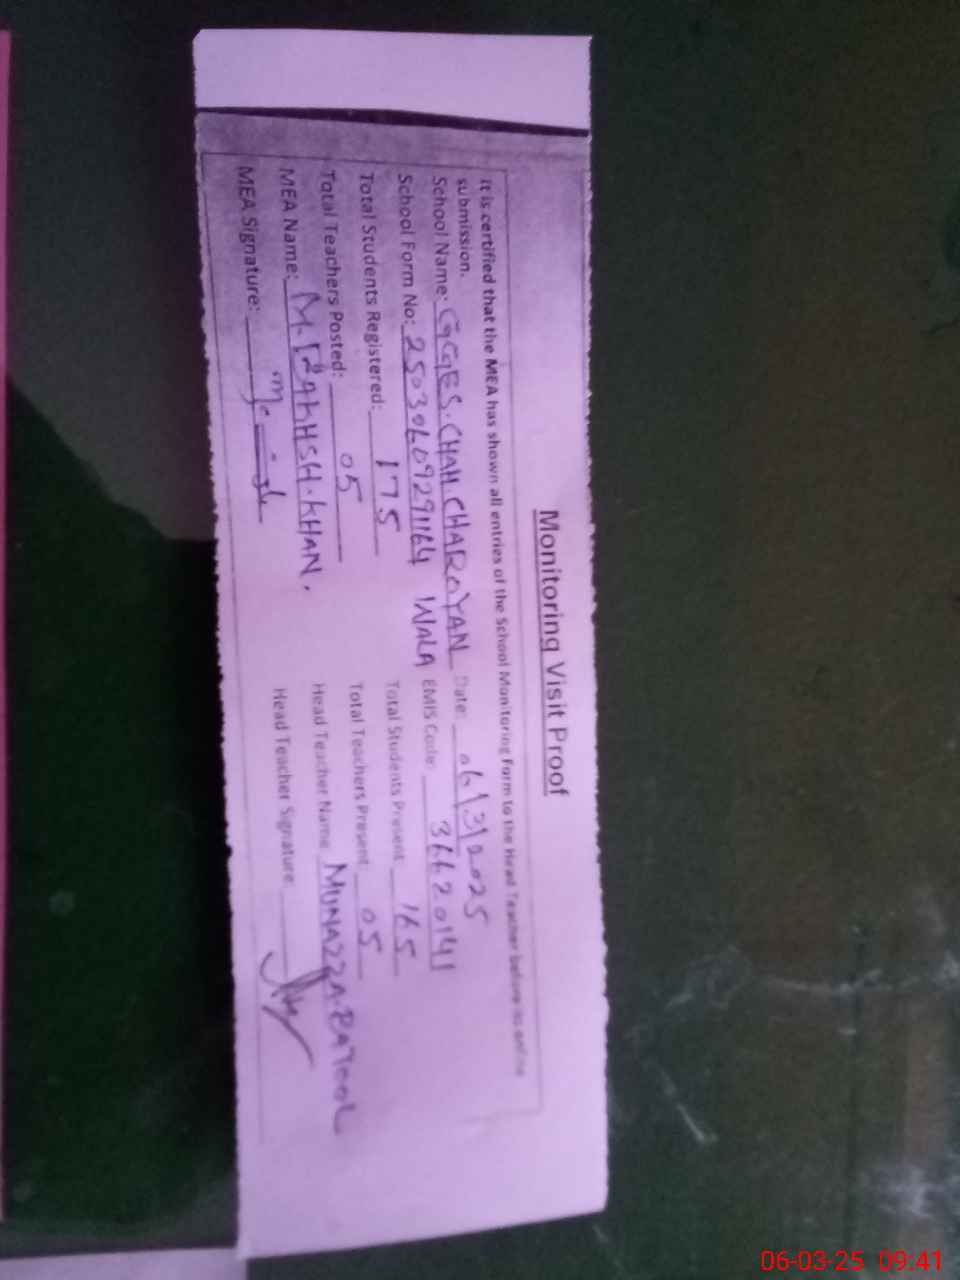 Monitoring Visit Proof
It is certified that the MEA has shown all entries of the School Monitoring Form to the Head Teacher before its online
submission.
School Name: GGES. CHAH CHAROYAN WALA Date: 06/3/2025
School Form No: 25030609291164 EMIS Code: 36620141
Total Students Registered: 175 Total Students Present: 165
Total Teachers Posted: 05 Total Teachers Present: 05
MEA Name: KHAN. Head Teacher Name MUNAZZA. BATOOL
MEA Signature: Head Teacher Signature:
06-03-25 09:41